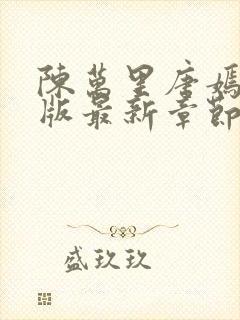 陳萬里唐嫣
版最新章節
盛玖玖